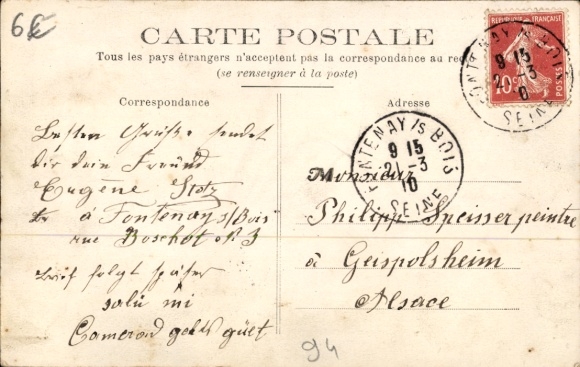 6€
CARTE POSTALE
Tous les pays étrangers n'acceptent pas la correspondance au rec
(se renseigner à la poste)
Correspondance
Adresse
REPUBLIQUE FRANÇAISE
10c
POSTES
FONTENAY /S BOIS
9 15
21 -3
10
SEINE
FONTENAY /S BOIS
9 15
21 -3
10
SEINE
Besten Grüße sendet
dir dein Freund
Eugène Stotz
à Fontenay s/Bois
rue Boschot No 3
Brief folgt später
salü mi
Camerad gehts güet
Monsieur
Philipp Speisser peintre
à Geispolsheim
Alsace
94